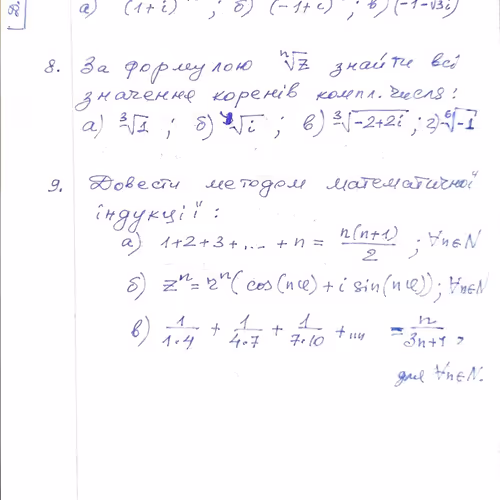 а) (1+i) ; б) (-1+i) ; в) (-1-√3i)
8. За формулою ⁿ√z знайти всі
значення коренів компл. числа:
а) ³√1 ; б) √i ; в) ³√-2+2i ; г) ⁶√-1
9. Довести методом математичної
індукції:
а) 1+2+3+...+n = n(n+1)/2 ; ∀n∈N
б) zⁿ=rⁿ(cos(nφ)+i sin(nφ)); ∀n∈N
в) 1/1·4 + 1/4·7 + 1/7·10 +... = n/3n+1,
для ∀n∈N.